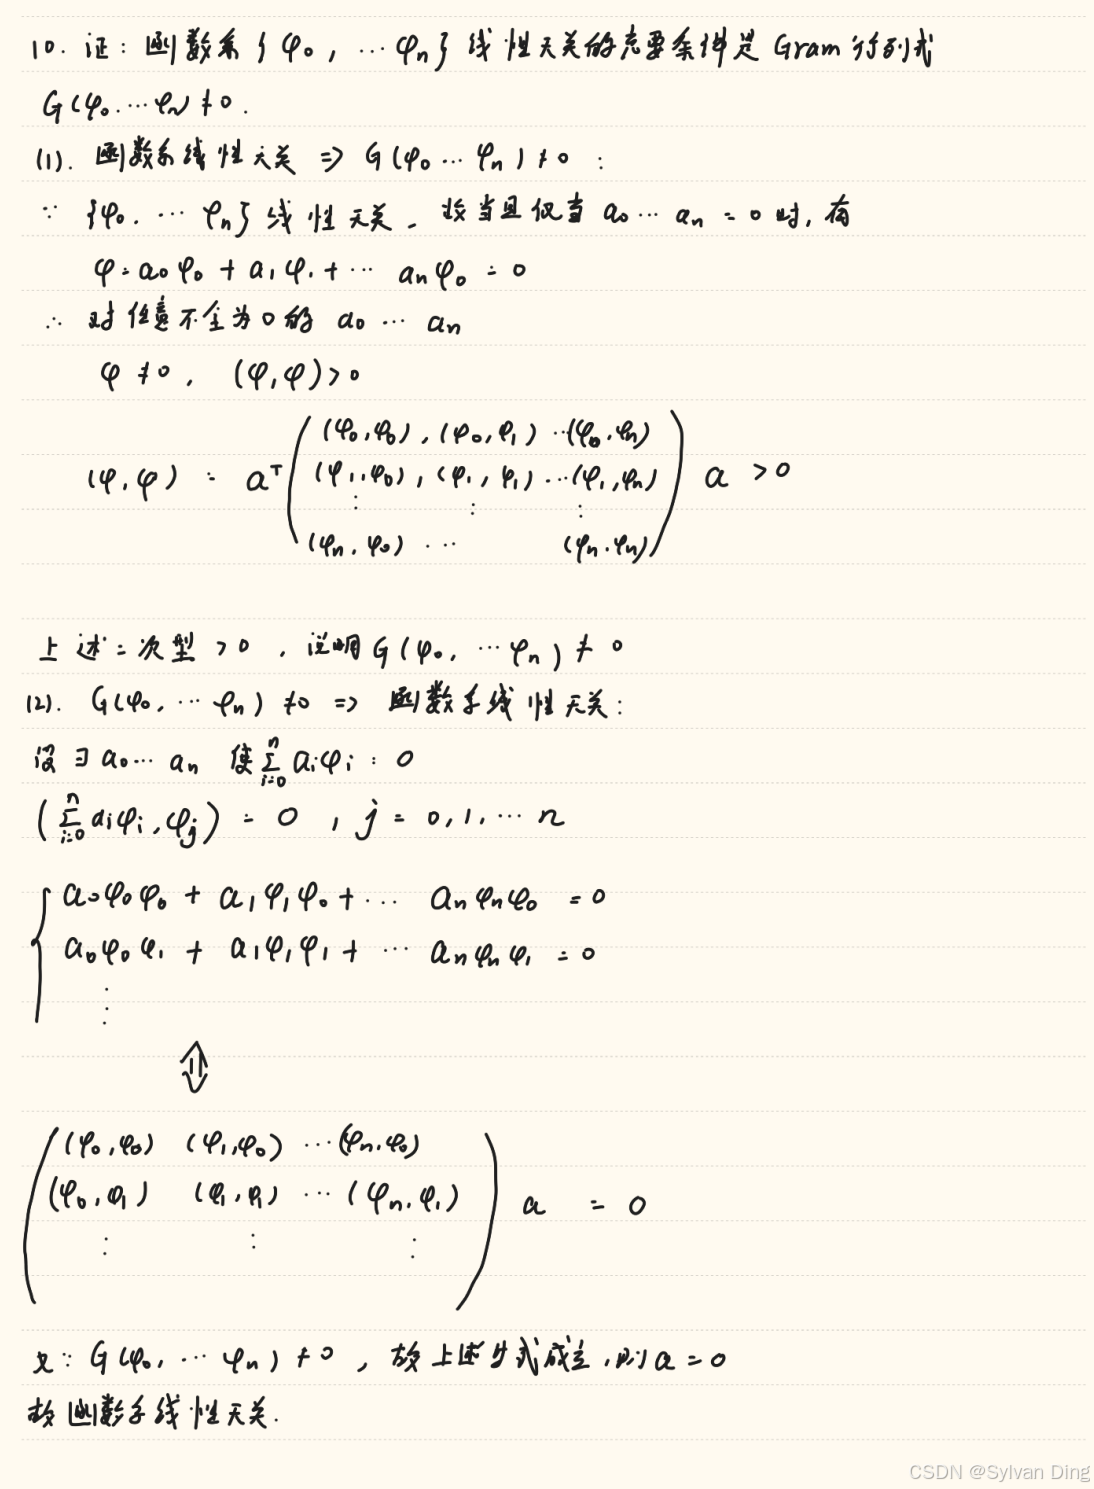 10. 证: 函数系 { φ₀, ⋯ φₙ } 线性无关的充要条件是 Gram 行列式
G(φ₀. ⋯ φₙ) ≠ 0.
(1). 函数系线性无关 => G(φ₀ ⋯ φₙ) ≠ 0 :
∵ {φ₀. ⋯ φₙ} 线性无关. 故当且仅当 a₀ ⋯ aₙ = 0 时, 有
φ = a₀φ₀ + a₁φ₁ + ⋯ aₙφ₀ = 0
∴ 对任意不全为0的 a₀ ⋯ aₙ
φ ≠ 0, (φ,φ) > 0
(φ,φ) = aᵀ ( (φ₀,φ₀), (φ₀,φ₁) ⋯ (φ₀,φₙ)
(φ₁,φ₀), (φ₁,φ₁) ⋯ (φ₁,φₙ)
⋮ ⋮ ⋮
(φₙ,φ₀) ⋯ (φₙ,φₙ) ) a > 0
上述二次型 > 0 , 说明 G(φ₀, ⋯ φₙ) ≠ 0
(2). G(φ₀, ⋯ φₙ) ≠ 0 => 函数系线性无关:
设 ∃ a₀ ⋯ aₙ 使 ∑ⁿᵢ₌₀ aᵢφᵢ = 0
(∑ⁿᵢ₌₀ aᵢφᵢ, φⱼ) = 0 , j = 0,1,⋯ n
{ a₀φ₀φ₀ + a₁φ₁φ₀ + ⋯ aₙφₙφ₀ = 0
a₀φ₀φ₁ + a₁φ₁φ₁ + ⋯ aₙφₙφ₁ = 0
⋮
⇕
( (φ₀,φ₀) (φ₁,φ₀) ⋯ (φₙ,φ₀)
(φ₀,φ₁) (φ₁,φ₁) ⋯ (φₙ,φ₁)
⋮ ⋮ ⋮ ) a = 0
又∵ G(φ₀, ⋯ φₙ) ≠ 0 , 故上述等式成立, 则 a = 0
故函数系线性无关.
CSDN @Sylvan Ding